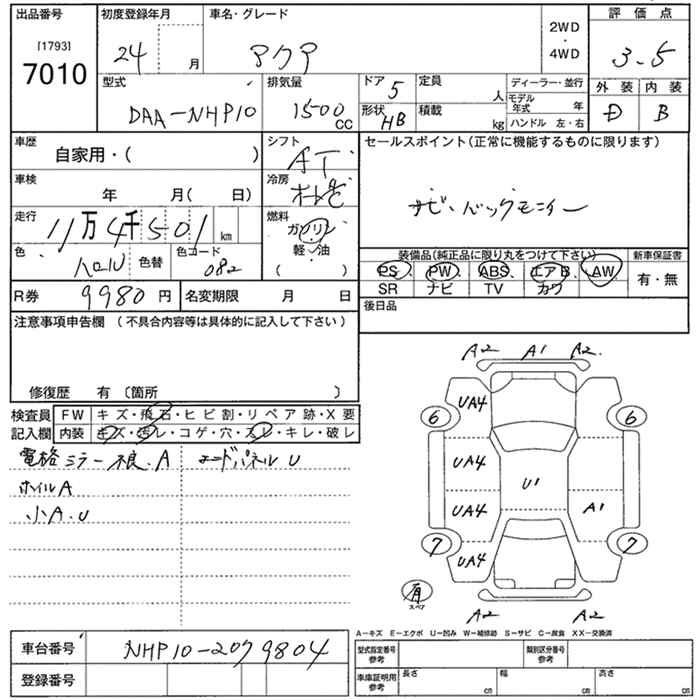 出品番号
[1793]
7010
初度登録年月
24 月
車名・グレード
アクア
2WD
・
4WD
評価点
3.5
型式
DAA-NHP10
排気量
1500
CC
ドア 5
形状 HB
定員
人
積載
kg
ディーラー・並行
モデル年式 年
ハンドル 左・右
外装 内装
D B
車歴
自家用・( )
シフト
AT
セールスポイント(正常に機能するものに限ります)
ナビ・バックモニター
車検
年 月( 日)
冷房
走行
11万4千501 km
燃料
ガソリン
軽・油
( )
色
パール
色替
色コード
082
装備品(純正品に限り丸をつけて下さい)
新車保証書
PS PW ABS エアB AW
SR ナビ TV カワ
有・無
R券 9980円
名変期限 月 日
後日品
注意事項申告欄 (不具合内容等は具体的に記入して下さい)
修復歴 有 〔箇所 )
検査員 FW キズ・飛石・ヒビ割・リペア跡・X要
記入欄 内装 キズ・汚レ・コゲ・穴・スレ・キレ・破レ
電格ミラー不良.A
フードパネルU
ホイルA
小A.U
A2 A1 A2
UA4
6 6
UA4
U1
UA4 A1
7 7
UA4
有
スペア
A2 A2
A-キズ E-エクボ U-凹み W-補修跡 S-サビ C-腐食 XX-交換済
車台番号 NHP10-2079804
登録番号
型式指定番号
参考
類別区分番号
参考
車庫証明用
参考
長さ cm 幅 cm 高さ cm